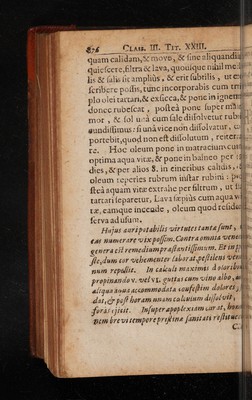 676 CLASS. III. TIT. XXIII.
quam calidam, & move, & sine aliquandiu
quiescere, filtra & lava, quousque nihil me l
lis & salis sit amplius, & erit subtilis, ut ex
scribere possis, tunc incorporabis cum tri
plo olei tartari, & exsicca, & pone in ignem
donec rubescat, posteà pone super mar
mor, & sol unà cum sale dissolvetur rub
cundissimus: si unà vice non dissolvatur,
portebit, quod non est dissolutum, reiter
re. Hoc oleum pone in matracium cum
optima aqua vitæ, & pone in balneo per
dies, & per alios 8. in cineribus calidis, &
oleum reperies rubrum instar rubini: po
steà aquam vitæ extrahe per filtrum, ut
tartari separetur, Lava sæpius cum aqua vi
tæ, eamque incende, oleum quod residet
serva ad usum.
Hujus auri potabilis virtutes tantæ sunt,
eas numerare vix possim. Contra omnia vene
genera est remedium præstantissimum. Et in
ste, dum cor vehementer laborat, pestilens vene
num repellit. In calculi maximis doloribus
propinando v. vel vi. guttas cum vino albo,
aliqua aqua accommodata confestim dolores
dat, & post horam unam calculum dissolvit,
foras ejicit. Insuper apoplexiam curat, ho
nem brevi tempore pristinæ sanitati restituen